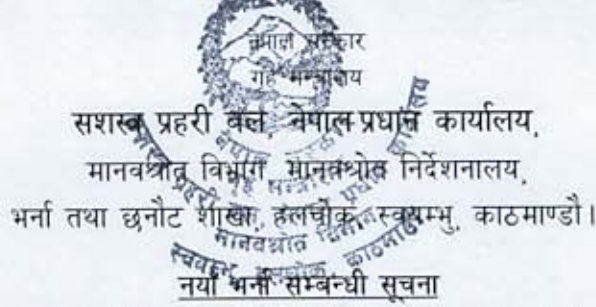 नेपाल सरकार
गृह मन्त्रालय
सशस्त्र प्रहरी बल, नेपाल प्रधान कार्यालय,
मानवश्रोत विभाग, मानवश्रोत निर्देशनालय,
भर्ना तथा छनौट शाखा, हलचोक, स्वयम्भु, काठमाण्डौ।
नयाँ भर्ना सम्बन्धी सूचना